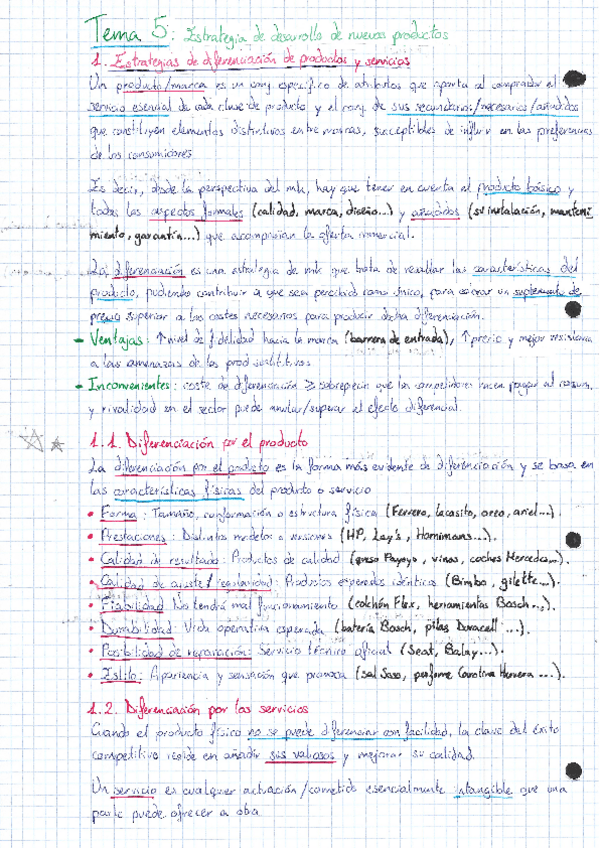 Tema 5: Estrategia de desarrollo de nuevos productos
1. Estrategias de diferenciación de productos y servicios
Un producto/marca es un conj. específico de atributos que aporta al comprador el
servicio esencial de cada clase de producto y el conj. de sus secundarios/necesarios/añadidos
que constituyen elementos distintivos entre marcas, susceptibles de influir en las preferencias
de los consumidores
Es decir, desde la perspectiva del mk, hay que tener en cuenta el producto básico y
todos los aspectos formales (calidad, marca, diseño...) y añadidos (su instalación, manteni
miento, garantía...) que acompañan la oferta comercial.
La diferenciación es una estrategia de mk que trata de resaltar las características del
producto, pudiendo contribuir a que sea percibido como único, para cobrar un suplemento de
precio superior a los costes necesarios para producir dicha diferenciación.
- Ventajas: ↑ nivel de fidelidad hacia la marca (barrera de entrada), ↑ precio y mejor resistencia
a las amenazas de los prod sustitutivos
- Inconvenientes: coste de diferenciación ≥ sobreprecio que los competidores hacen pagar al consum.
y rivalidad en el sector puede anular/superar el efecto diferencial.
1.1. Diferenciación por el producto
La diferenciación por el producto es la forma más evidente de diferenciación y se basa en
las características físicas del producto o servicio
• Forma: Tamaño, conformación o estructura física (Ferrero, Lacasito, oreo, ariel...).
• Prestaciones: Distintos modelos o versiones (HP, Lay's, Hornimans...).
• Calidad de resultado: Productos de calidad (queso Payoyo, vinos, coches Mercedes...).
• Calidad de ajuste/regularidad: Productos esperados idénticos (Bimbo, gilette...).
• Fiabilidad: No tendrá mal funcionamiento (colchón Flex, herramientas Bosch...).
• Durabilidad: Vida operativa esperada (batería Bosch, pilas Duracell...).
• Posibilidad de reparación: Servicio técnico oficial (Seat, Balay...).
• Estilo: Apariencia y sensación que provoca (sal Saso, perfume Carolina Herrera...).
1.2. Diferenciación por los servicios
Cuando el producto físico no se puede diferenciar con facilidad, la clave del éxito
competitivo reside en añadir sus valiosos y mejorar su calidad.
Un servicio es cualquier actuación/cometido esencialmente intangible que una
parte puede ofrecer a otra